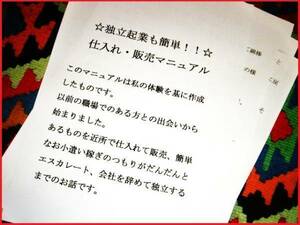 ☆独立起業も簡単!!☆
仕入れ・販売マニュアル
このマニュアルは私の体験を基に作成
したものです。
以前の職場でのある方との出会いから
始まりました。
あるものを近所で仕入れて販売、簡単
なお小遣い稼ぎのつもりがだんだんと
エスカレート、会社を辞めて独立する
までのお話です。